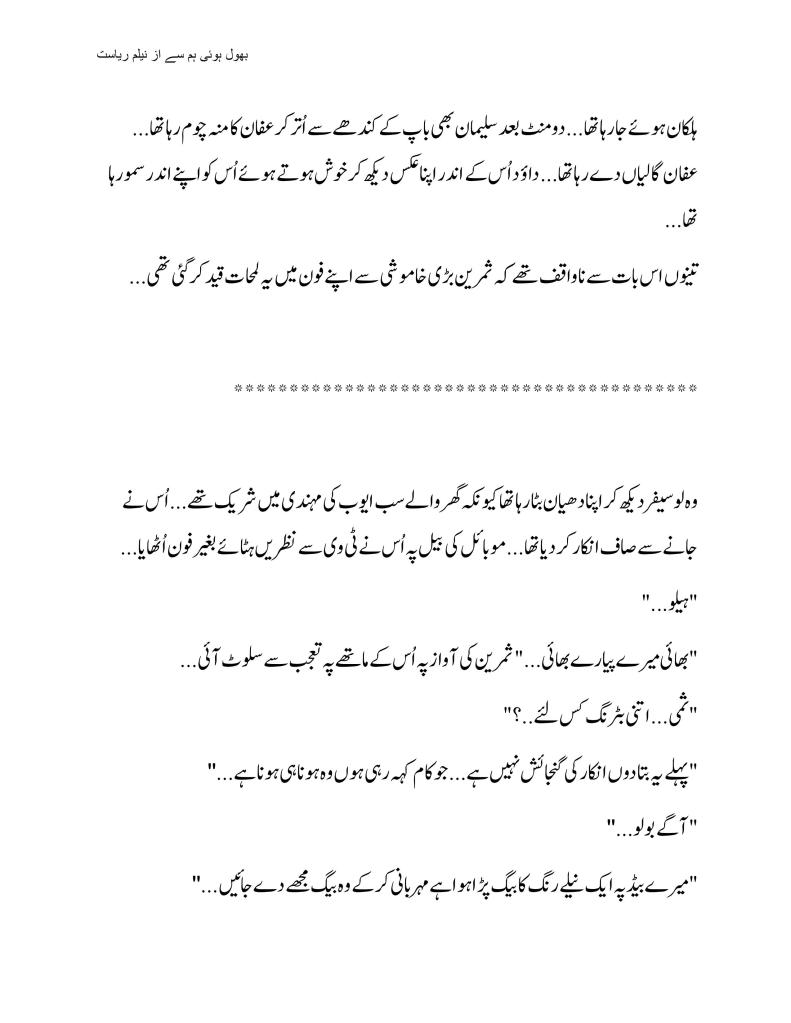 بھول ہوئی ہم سے از نیلم ریاست
ہلکان ہوئے جا رہا تھا... دو منٹ بعد سلیمان بھی باپ کے کندھے سے اُتر کر عفان کا منہ چوم رہا تھا...
عفان گالیاں دے رہا تھا... داؤد اُس کے اندر اپنا عکس دیکھ کر خوش ہوتے ہوئے اُس کو اپنے اندر سمو رہا
تھا...
تینوں اس بات سے ناواقف تھے کہ ثمرین بڑی خاموشی سے اپنے فون میں یہ لمحات قید کر گئی تھی...
******************************************
وہ لوسیفر دیکھ کر اپنا دھیان بٹا رہا تھا کیونکہ گھر والے سب ایوب کی مہندی میں شریک تھے... اُس نے
جانے سے صاف انکار کر دیا تھا... موبائل کی بیل پہ اُس نے ٹی وی سے نظریں ہٹائے بغیر فون اُٹھایا...
"ہیلو..."
"بھائی میرے پیارے بھائی..." ثمرین کی آواز پہ اُس کے ماتھے پہ تعجب سے سلوٹ آئی...
"ثمی... اتنی بٹرنگ کس لئے..؟"
"پہلے یہ بتا دوں انکار کی گنجائش نہیں ہے... جو کام کہہ رہی ہوں وہ ہونا ہی ہونا ہے..."
"آگے بولو..."
"میرے بیڈ پہ ایک نیلے رنگ کا بیگ پڑا ہوا ہے مہربانی کر کے وہ بیگ مجھے دے جائیں..."